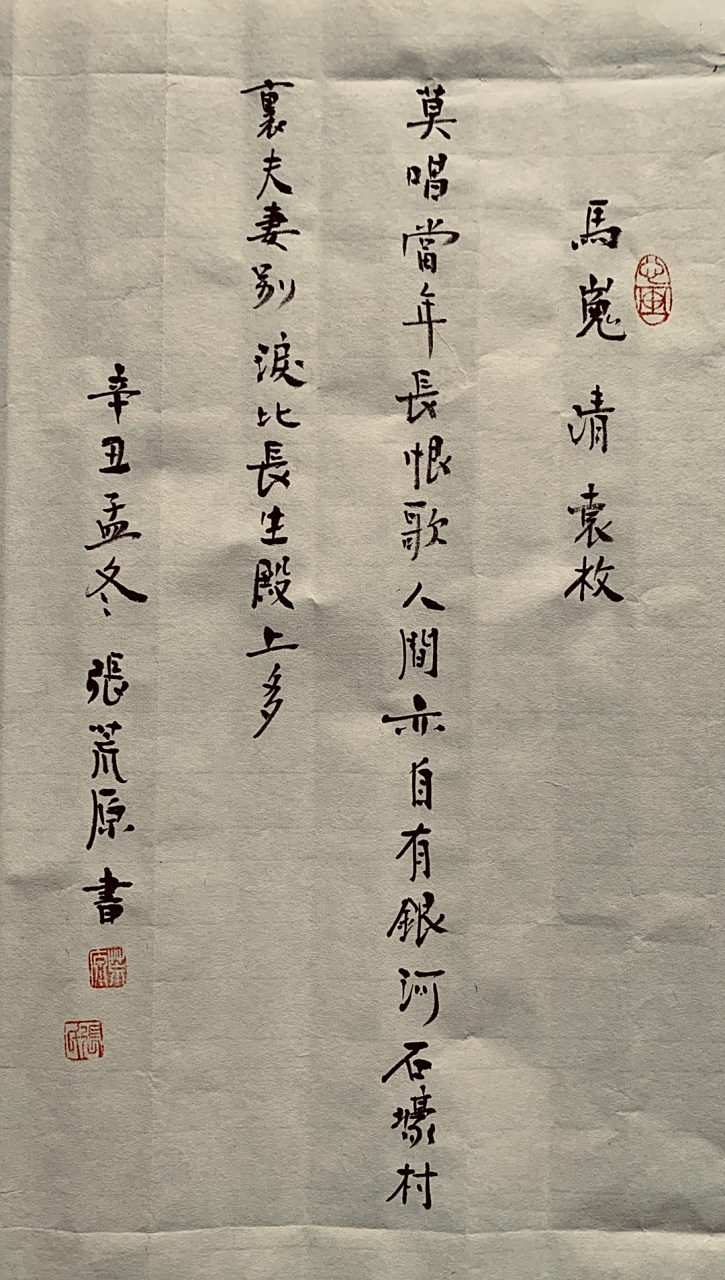 馬嵬 清 袁枚
莫唱當年長恨歌人間亦自有銀河石壕村
裏夫妻别淚比長生殿上多
辛丑孟冬 張荒原書
荒原
張氏